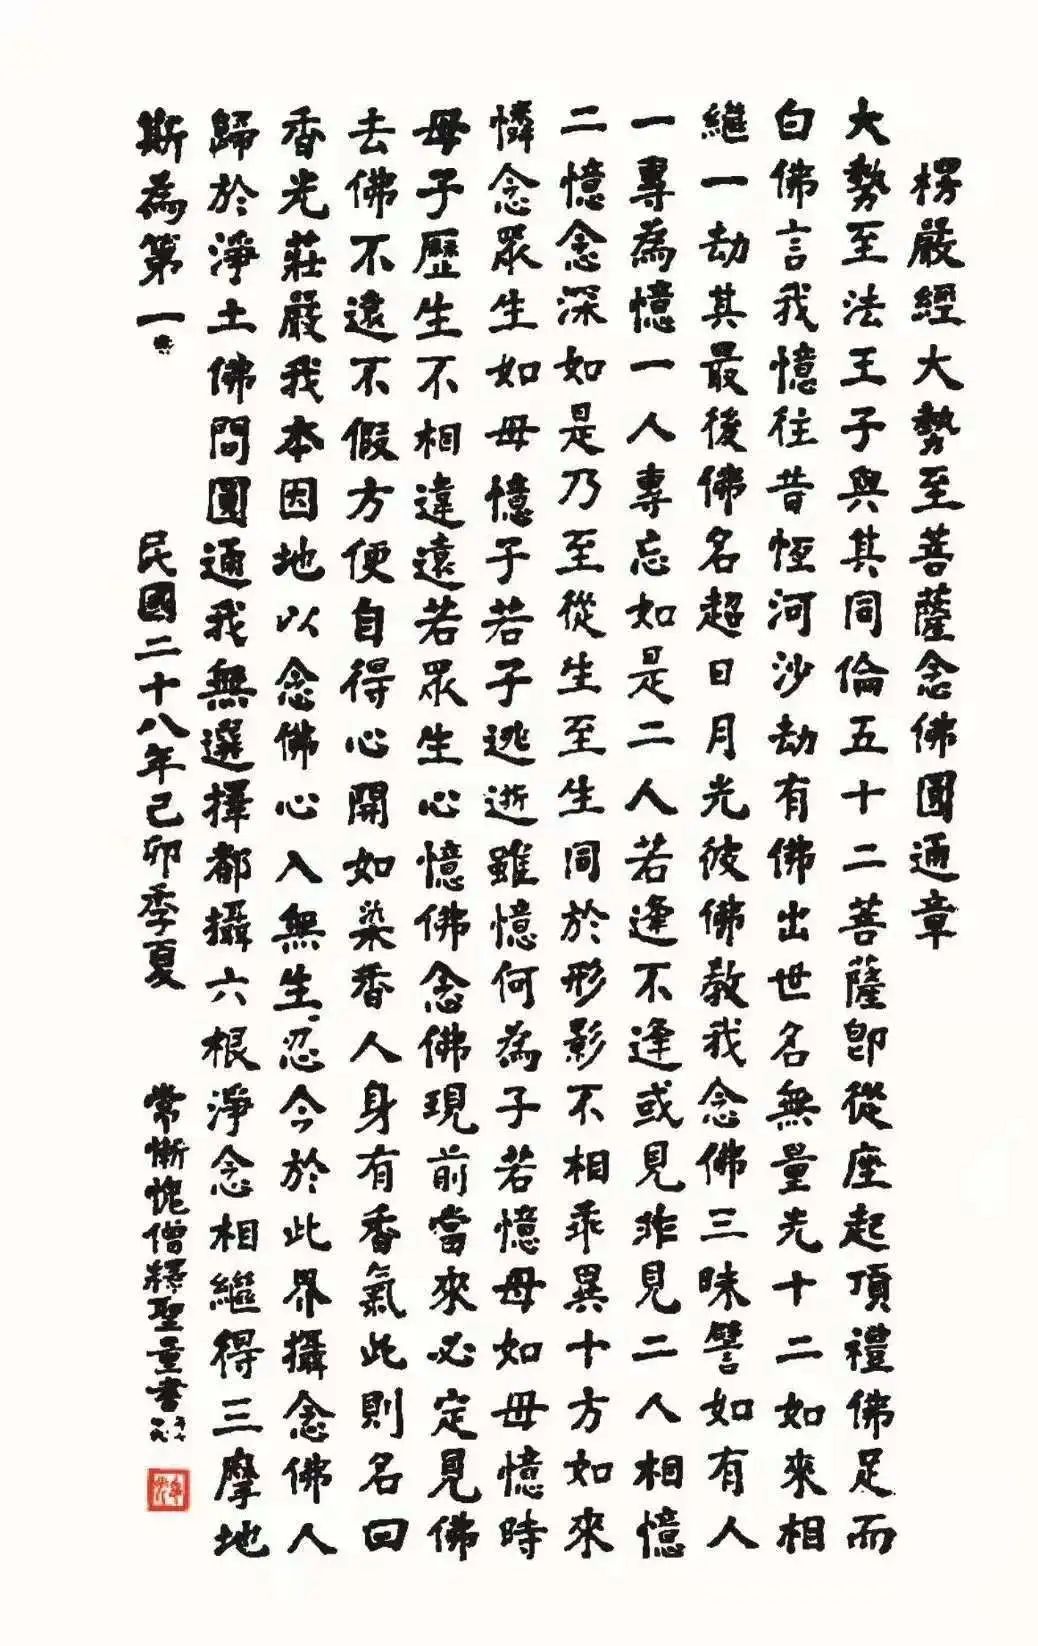 楞嚴經大勢至菩薩念佛圓通章
大勢至法王子與其同倫五十二菩薩即從座起頂禮佛足而
白佛言我憶往昔恆河沙劫有佛出世名無量光十二如來相
繼一劫其最後佛名超日月光彼佛教我念佛三昧譬如有人
一專為憶一人專忘如是二人若逢不逢或見非見二人相憶
二憶念深如是乃至從生至生同於形影不相乖異十方如來
憐念眾生如母憶子若子逃逝雖憶何為子若憶母如母憶時
母子歷生不相違遠若眾生心憶佛念佛現前當來必定見佛
去佛不遠不假方便自得心開如染香人身有香氣此則名曰
香光莊嚴我本因地以念佛心入無生忍今於此界攝念佛人
歸於淨土佛問圓通我無選擇都攝六根淨念相繼得三摩地
斯為第一 民國二十八年己卯季夏 常慚愧僧釋聖量書